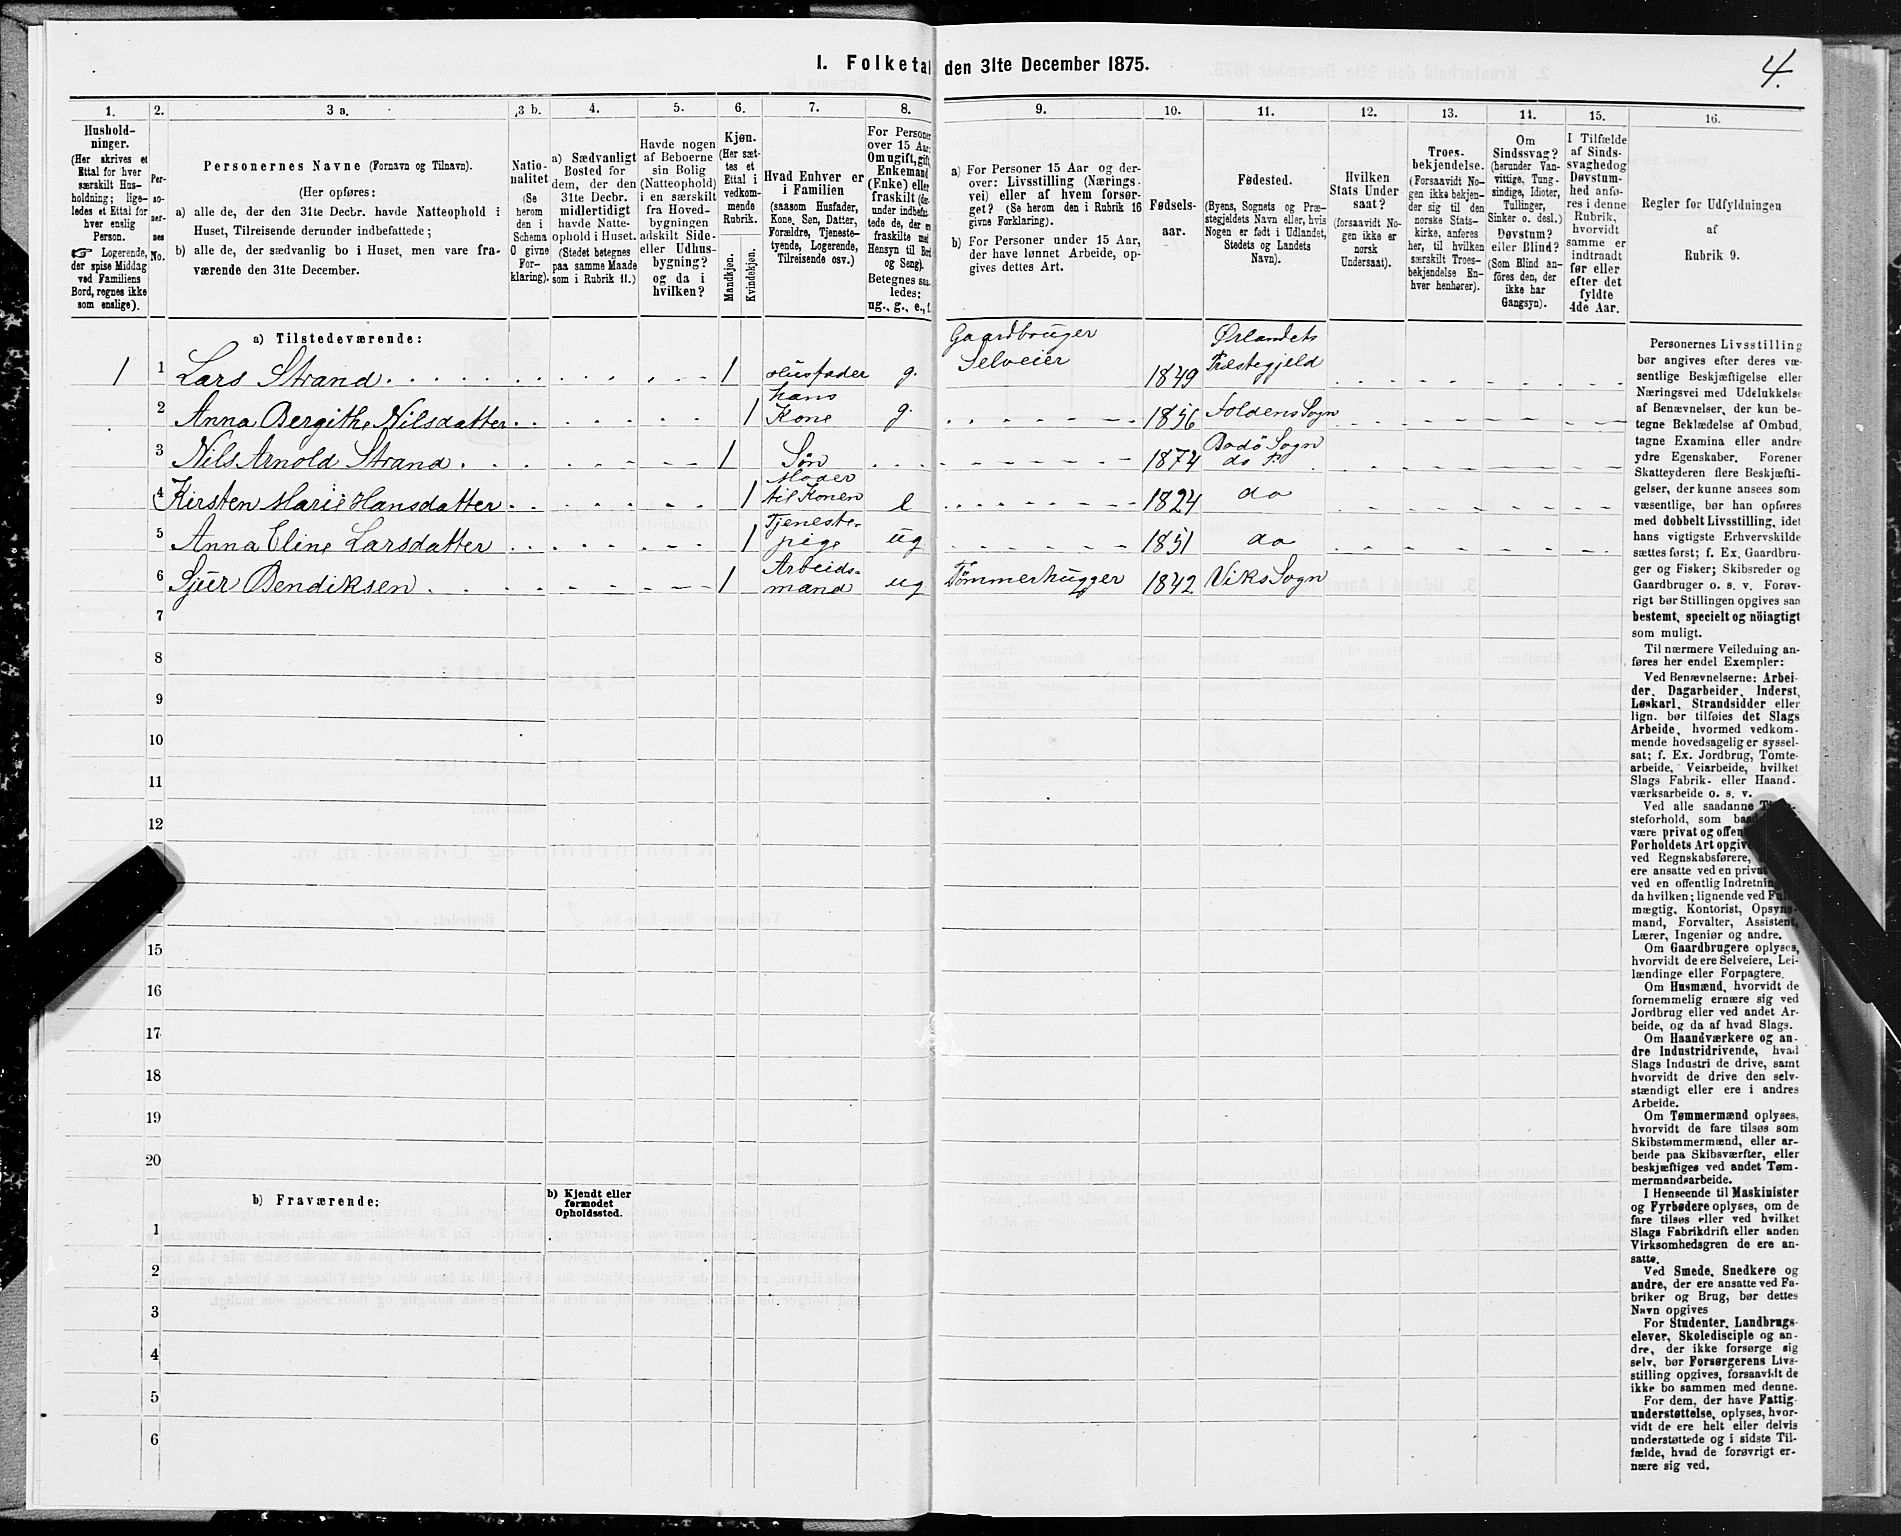 I. Folketal den 31te December 1875.
4.
1.
Hushold-
ninger.
(Her skrives et
Ettal for hver
særskilt Hus-
holdning; lige-
ledes et Ettal for
hver enslig
Person.
☞ Logerende,
der spise Middag
ved Familiens
Bord, regnes ikke
som enslige).
2.
Per-
so-
ner-
nes
No.
3 a.
Personernes Navne (Fornavn og Tilnavn).
(Her opføres:
a) alle de, der den 31te Decbr. havde Natteophold i
Huset, Tilreisende derunder indbefattede;
b) alle de, der sædvanlig bo i Huset, men vare fra-
værende den 31te December.
3 b.
Natio-
nalitet
(Se
herom
den i
Schema
O givne
For-
klaring).
4.
a) Sædvanligt
Bosted for
dem, der den
31te Decbr.
midlertidigt
havde Natte-
ophold i Huset.
(Stedet betegnes
paa samme Maade
som i Rubrik 11.)
5.
Havde nogen
af Beboerne
sin Bolig
(Natteophold)
i en særskilt
fra Hoved-
bygningen
adskilt Side-
eller Udhus-
bygning?
og da i
hvilken?
6.
Kjøn.
(Her sæt-
tes et
Ettal i
vedkom-
mende
Rubrik.
Mandkjøn.
Kvindekjøn.
7.
Hvad Enhver er
i Familien
(saasom Husfader,
Kone, Søn, Datter,
Forældre, Tjeneste-
tyende, Logerende,
Tilreisende osv.)
8.
For Personer
over 15 Aar:
Om ugift, gift,
Enkemand
(Enke) eller
fraskilt (der-
under indbefat-
tede de, der ere
fraskilte med
Hensyn til Bord
og Seng).
Betegnes saa-
ledes:
ug., g., e., f.
9.
a) For Personer 15 Aar og der-
over: Livsstilling (Nærings-
vei) eller af hvem forsør-
get? (Se herom den i Rubrik 16
givne Forklaring).
b) For Personer under 15 Aar,
der have lønnet Arbeide, op-
gives dettes Art.
10.
Fødsels-
aar.
11.
Fødested.
(Byens, Sognets og Præ-
stegjeldets Navn eller, hvis
Nogen er født i Udlandet,
Stedets og Landets
Navn).
12.
Hvilken
Stats Under
saat?
(forsaavidt No-
gen ikke er
norsk
Undersaat).
13.
Troes-
bekjendelse.
(Forsaavidt No-
gen ikke bekjen-
der sig til den
norske Stats-
kirke, anføres
her, til hvilken
særskilt Troes-
bekjendelse En-
hver henhører).
14.
Om
Sindssvag?
(herunder Van-
vittige, Tung-
sindige, Idioter,
Tullinger,
Sinker o. desl.)
Døvstum?
eller Blind?
(Som Blind an-
føres den, der
ikke har
Gangsyn).
15.
I Tilfælde
af Sinds-
svaghed og
Døvstum-
hed anfø-
res i denne
Rubrik,
hvorvidt
samme er
indtraadt
før eller
efter det
fyldte
4de Aar.
16.
Regler for Udfyldningen
af
Rubrik 9.
a) Tilstedeværende:
1 1 Lars Strand 1 Husfader g. Gaardbruger Selveier 1849 Ørlandets Præstegjeld
2 Anna Bergithe Nilsdatter 1 hans Kone g. 1856 Foldens Sogn
3 Nils Arnold Strand 1 Søn 1874 Bodö Sogn do P.
4 Kirsten Marie Hansdatter 1 Moder til Konen e 1824 do
5 Anna Eline Larsdatter 1 Tjeneste- pige ug 1851 do
6 Sjur Bendiksen 1 Arbeids- mand ug Tömmerhugger 1842 Viks Sogn
7
8
9
10
11
12
15
16
17
18
19
20
b) Fraværende:
b) Kjendt eller
formodet
Opholdssted.
1
2
3
4
5
6
Personernes Livsstilling
bør angives efter deres væ-
sentlige Beskjæftigelse eller
Næringsvei med Udelukkelse
af Benævnelser, der kun be-
tegne Beklædelse af Ombud,
tagne Examina eller andre
ydre Egenskaber. Forener
Skatteyderen flere Beskjæfti-
gelser, der kunne ansees som
væsentlige, bør han opføres
med dobbelt Livsstilling, idet
hans vigtigste Erhvervskilde
sættes først; f. Ex. Gaardbru-
ger og Fisker; Skibsreder og
Gaardbruger o. s. v. Forøv-
rigt bør Stillingen opgives saa
bestemt, specielt og nöiagtigt
som muligt.
Til nærmere Veiledning an-
føres her endel Exempler:
Ved Benævnelserne: Arbei-
der, Dagarbeider, Inderst,
Løskarl, Strandsidder eller
lign. bør tilføies det Slags
Arbeide, hvormed vedkom-
mende hovedsagelig er syssel-
sat; f. Ex. Jordbrug, Tomte-
arbeide, Veiarbeide, hvilket
Slags Fabrik- eller Haand-
værksarbeide o. s. v.
Ved alle saadanne
steforhold, som
være privat og
Forholdets Art
ved Regnskabsførere,
ere ansatte ved en
ved en offentlig Indretning
da hvilken; lignende ved
mægtig, Kontorist, Opsyns-
mand, Forvalter, Assistent,
Lærer, Ingeniør og andre.
Om Gaardbrugere oplyses,
hvorvidt de ere Selveiere, Lei-
lændinge eller Forpagtere.
Om Husmænd, hvorvidt de
fornemmelig ernære sig ved
Jordbrug eller ved andet Ar-
beide, og da af hvad Slags.
Om Haandværkere og an-
dre Industridrivende, hvad
Slags Industri de drive, samt
hvorvidt de drive den selv-
stændigt eller ere i andres
Arbeide.
Om Tømmermænd oplyses,
hvorvidt de fare tilsøs som
Skibstømmermænd, eller ar-
beide paa Skibsværfter, eller
beskjæftiges ved andet Tøm-
mermandsarbeide.
I Henseende til Maskinister
og Fyrbødere oplyses, om de
fare tilsøs eller ved hvilket
Slags Fabrikdrift eller anden
Virksomhedsgren de ere an-
satte.
Ved Smede, Snedkere og
andre, der ere ansatte ved Fa-
briker og Brug, bør dettes
Navn opgives
For Studenter, Landbrugs-
elever, Skoledisciple og an-
dre, der ikke forsørge sig
selv, bør Forsørgerens Livs-
stilling opgives, forsaavidt de
ikke bo sammen med denne.
For dem, der have Fattig-
understøttelse, oplyses, hvor-
vidt de ere helt eller delvis
understøttede og i sidste Til-
fælde, hvad de forøvrigt er-
nære sig ved.